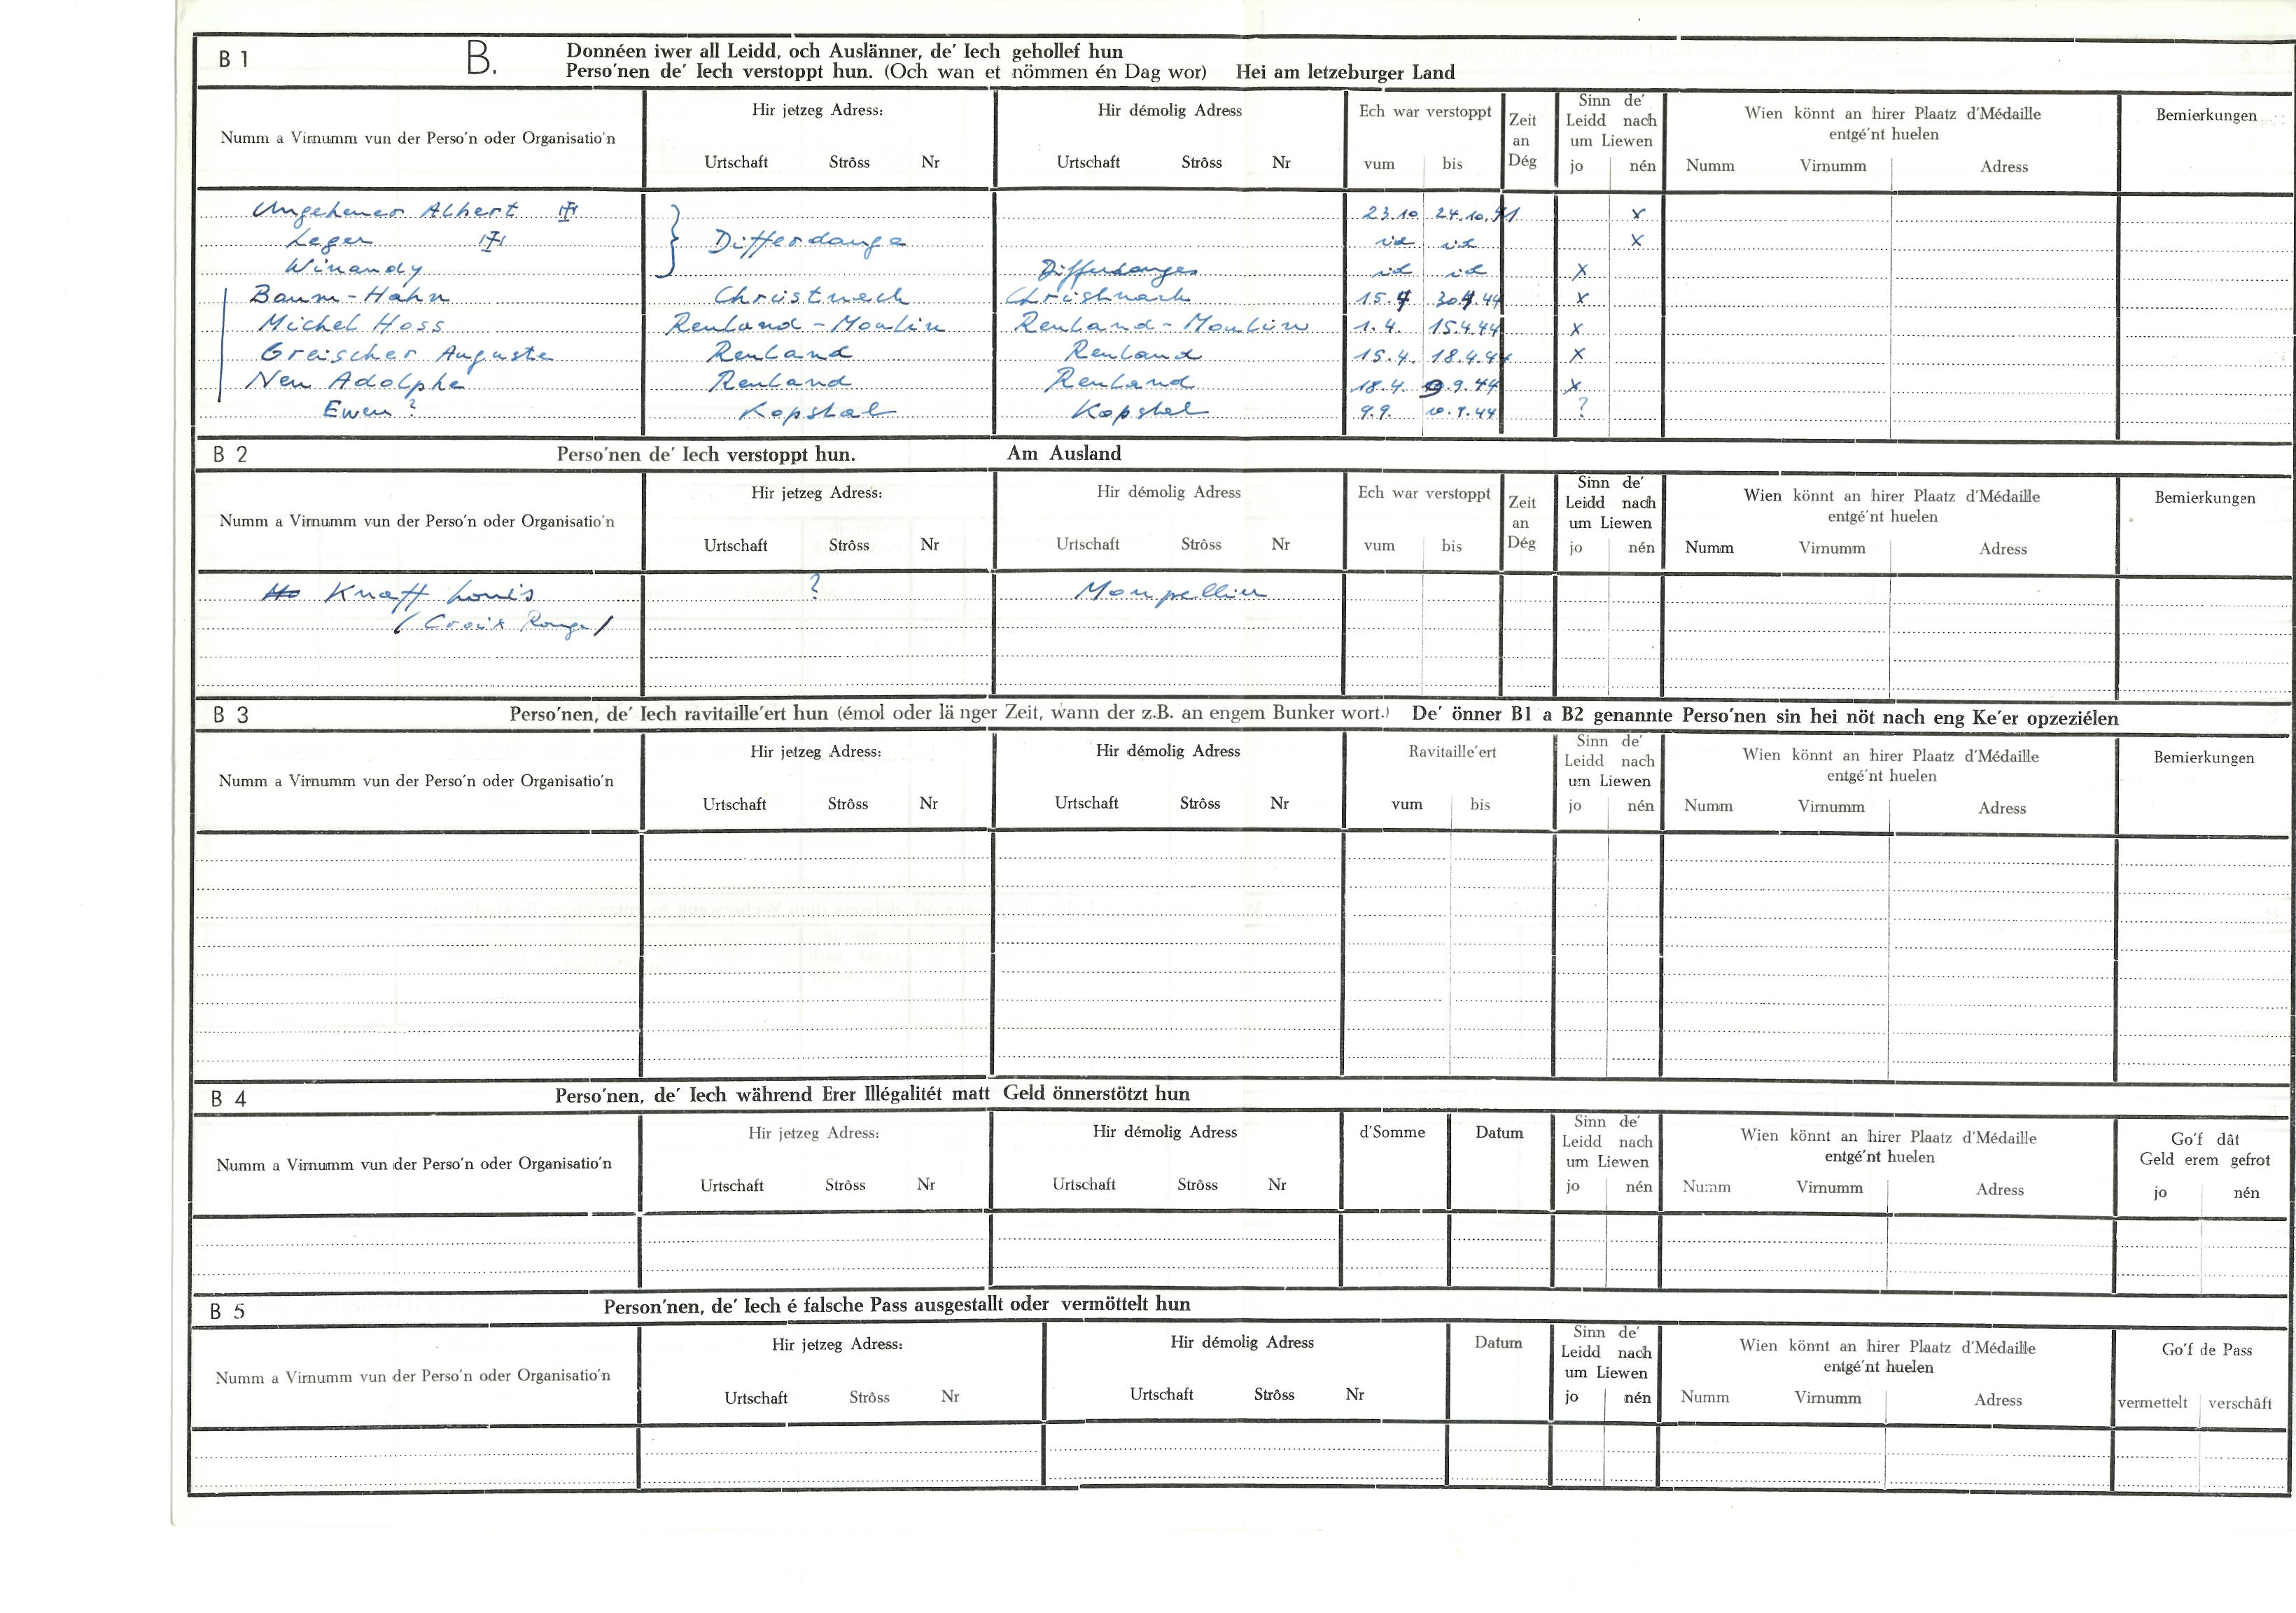 B 1 B. Donnéen iwer all Leidd, och Auslänner, de' Iech gehollef hun
Perso'nen de' Iech verstoppt hun. (Och wan et nömmen én Dag wor) Hei am letzeburger Land
Numm a Virnumm vun der Perso'n oder Organisatio'n
Hir jetzeg Adress:
Urtschaft Strôss Nr
Hir démolig Adress
Urtschaft Strôss Nr
Ech war verstoppt
vum bis
Zeit
an
Dég
Sinn de'
Leidd nach
um Liewen
jo nén
Wien könnt an hirer Plaatz d'Médaille
entgé'nt huelen
Numm Virnumm Adress
Bemierkungen
Ungeheuer Albert 23.10 24.10.41 x
Leger } Differdange id id x
Winandy Differdange id id x
Baum-Hahn Christnach Christnach 15. 30. .44 x
Michel Hoss Reuland-Moulin Reuland-Moulin 1.4. 15.4.44 x
Greischer Auguste Reuland Reuland 15.4. 18.4.44 x
Neu Adolphe Reuland Reuland 18.4. 9.9.44 x
Ewen ? Kopstal Kopstal 9.9. 10.9.44 ?
B 2 Perso'nen de' Iech verstoppt hun. Am Ausland
Numm a Virnumm vun der Perso'n oder Organisatio'n
Hir jetzeg Adress:
Urtschaft Strôss Nr
Hir démolig Adress
Urtschaft Strôss Nr
Ech war verstoppt
vum bis
Zeit
an
Dég
Sinn de'
Leidd nach
um Liewen
jo nén
Wien könnt an hirer Plaatz d'Médaille
entgé'nt huelen
Numm Virnumm Adress
Bemierkungen
Knaff Louis ? Monpellier
(Croix Rouge)
B 3 Perso'nen, de' Iech ravitaille'ert hun (émol oder länger Zeit, wann der z.B. an engem Bunker wort.) De' önner B1 a B2 genannte Perso'nen sin hei nöt nach eng Ke'er opzeziélen
Numm a Virnumm vun der Perso'n oder Organisatio'n
Hir jetzeg Adress:
Urtschaft Strôss Nr
Hir démolig Adress
Urtschaft Strôss Nr
Ravitaille'ert
vum bis
Sinn de'
Leidd nach
um Liewen
jo nén
Wien könnt an hirer Plaatz d'Médaille
entgé'nt huelen
Numm Virnumm Adress
Bemierkungen
B 4 Perso'nen, de' Iech während Erer Illégalitét matt Geld önnerstötzt hun
Numm a Virnumm vun der Perso'n oder Organisatio'n
Hir jetzeg Adress:
Urtschaft Strôss Nr
Hir démolig Adress
Urtschaft Strôss Nr
d'Somme
Datum
Sinn de'
Leidd nach
um Liewen
jo nén
Wien könnt an hirer Plaatz d'Médaille
entgé'nt huelen
Numm Virnumm Adress
Go'f dât
Geld erem gefrot
jo nén
B 5 Person'nen, de' Iech é falsche Pass ausgestallt oder vermöttelt hun
Numm a Virnumm vun der Perso'n oder Organisatio'n
Hir jetzeg Adress:
Urtschaft Strôss Nr
Hir démolig Adress
Urtschaft Strôss Nr
Datum
Sinn de'
Leidd nach
um Liewen
jo nén
Wien könnt an hirer Plaatz d'Médaille
entgé'nt huelen
Numm Virnumm Adress
Go'f de Pass
vermettelt verschâft